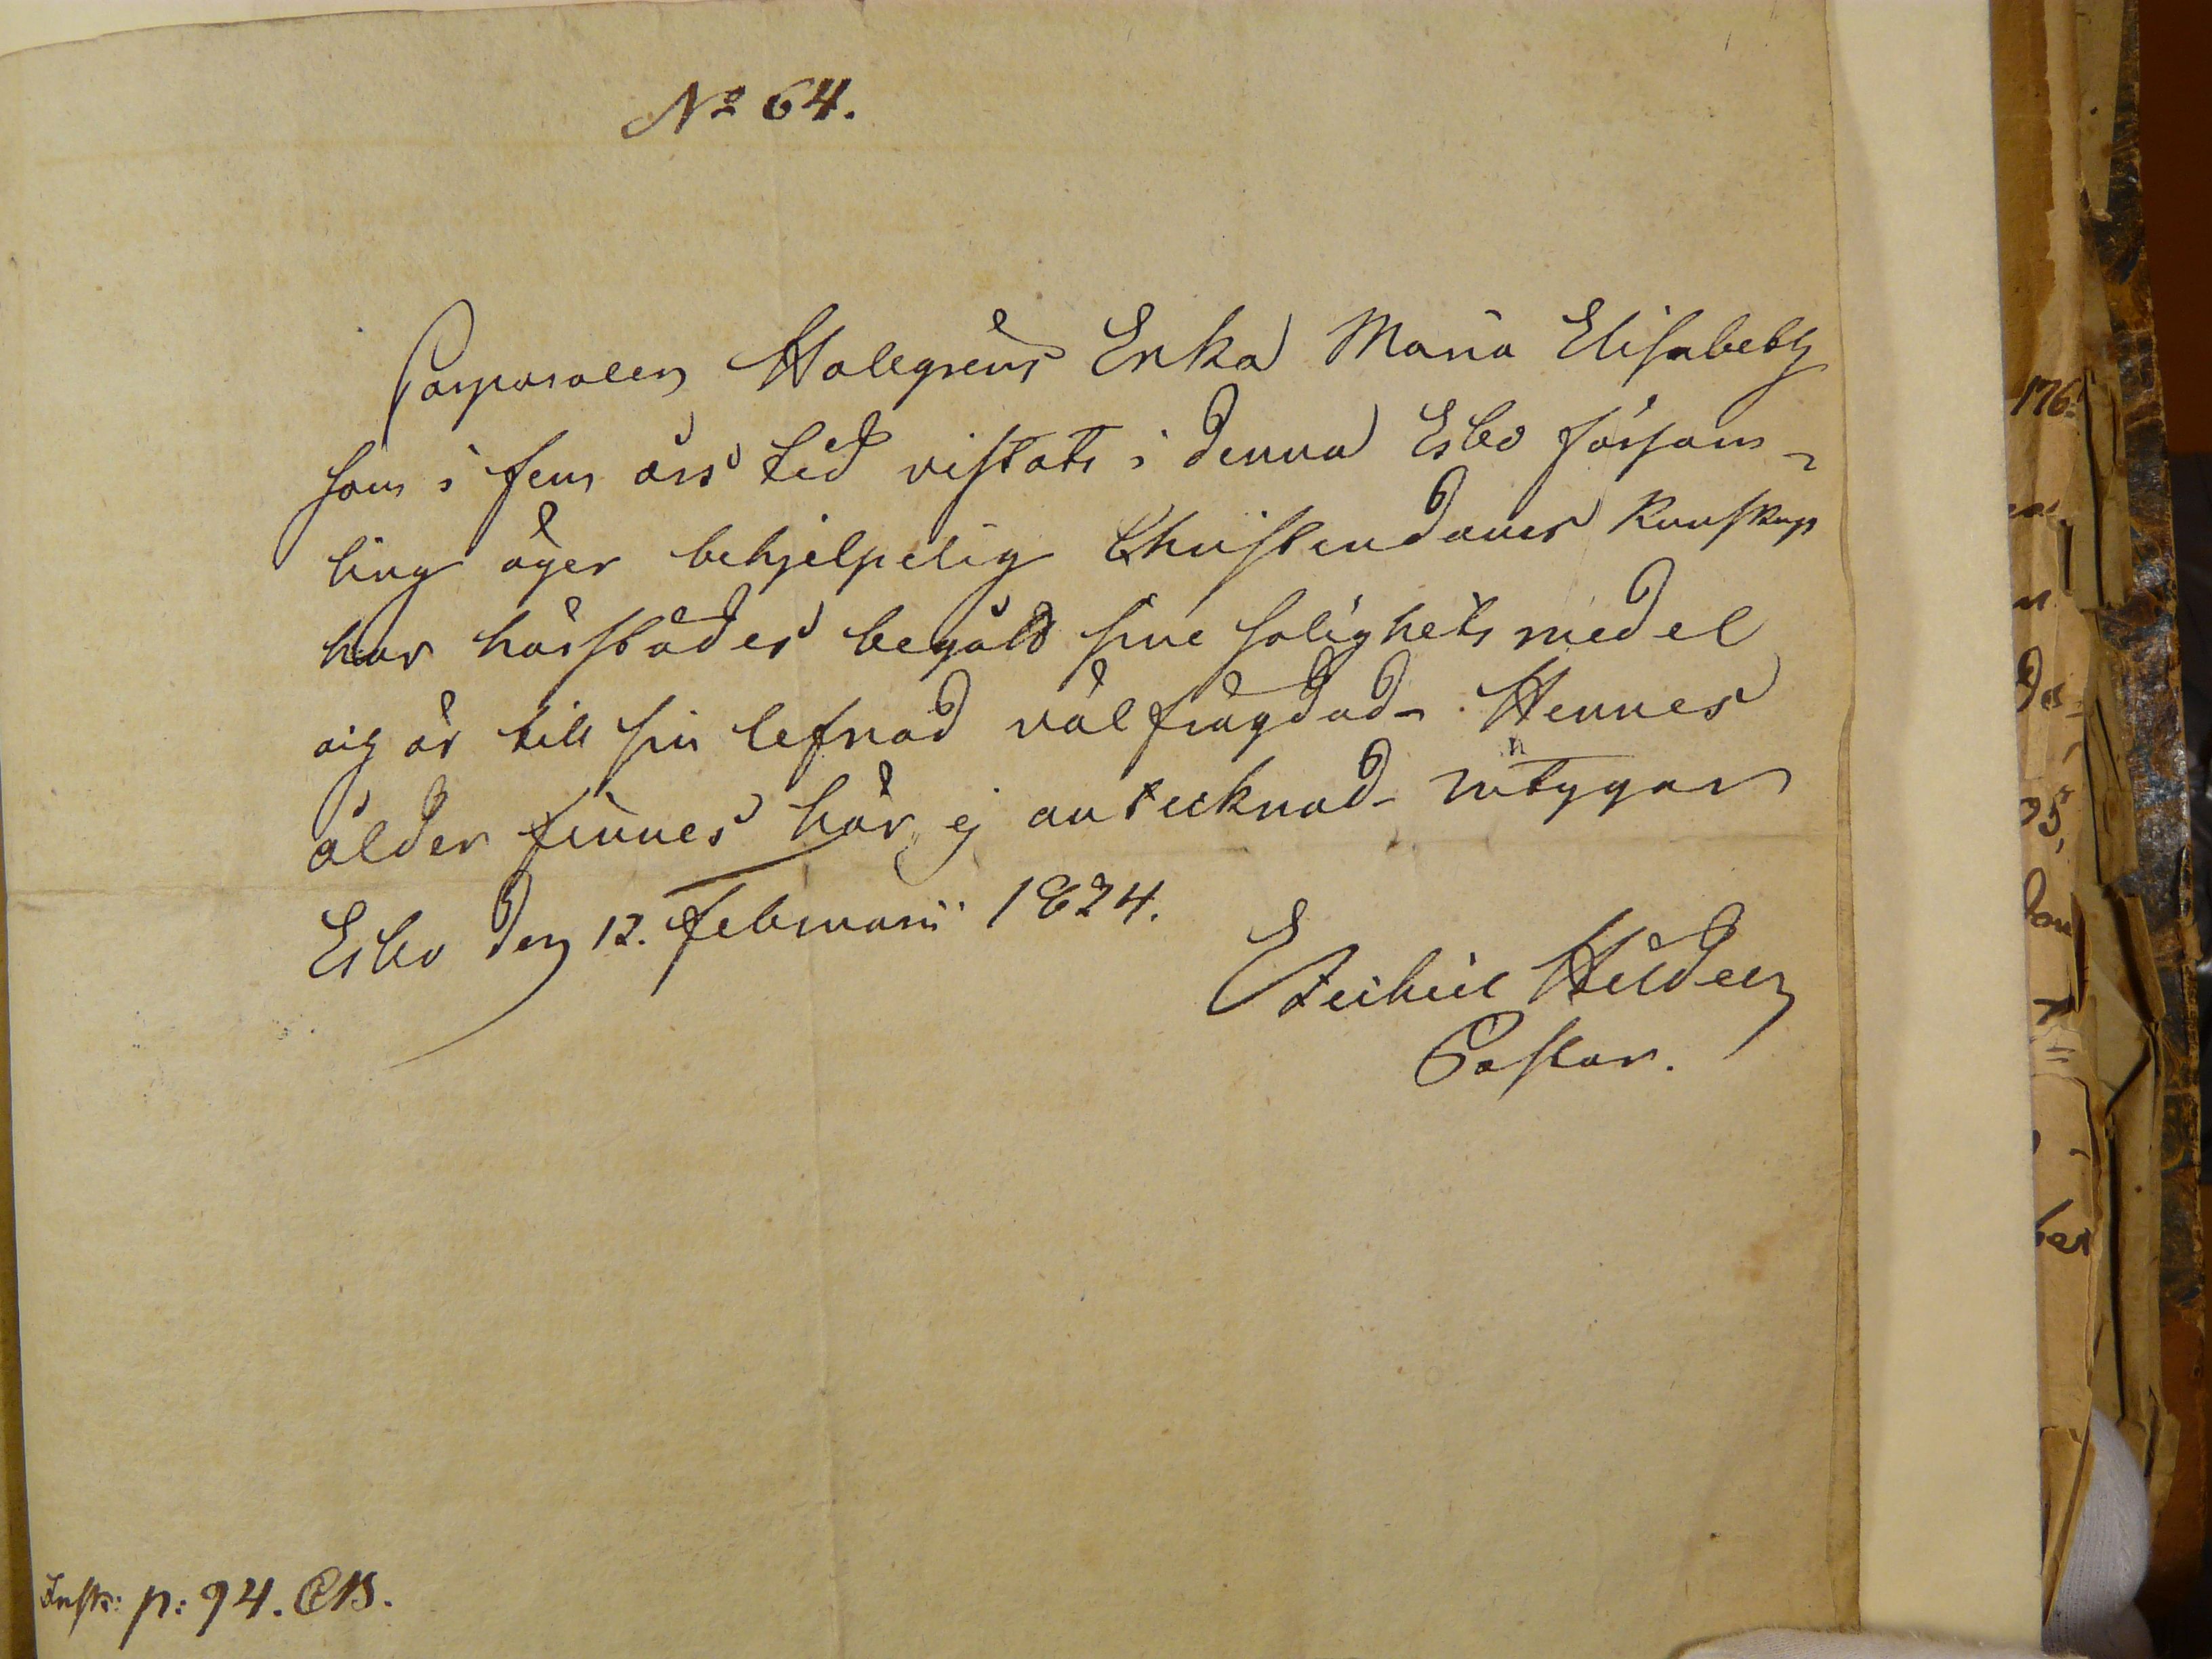 No 64.
Corporalen Hallgrens Enka Maria Elisabeth
som i fem års tid vistats i denna Esbo försam-
ling äger behjelpelig Christendoms kunskap
har härstädes begådt sine salighets medel
och är till sin lefnad välfrägdad. Hennes
ålder finnes här ej antecknad. intygar
Esbo den 12. februarii 1824.
Hildeen
Pastor.
Inskr: p: 94. CB.
176